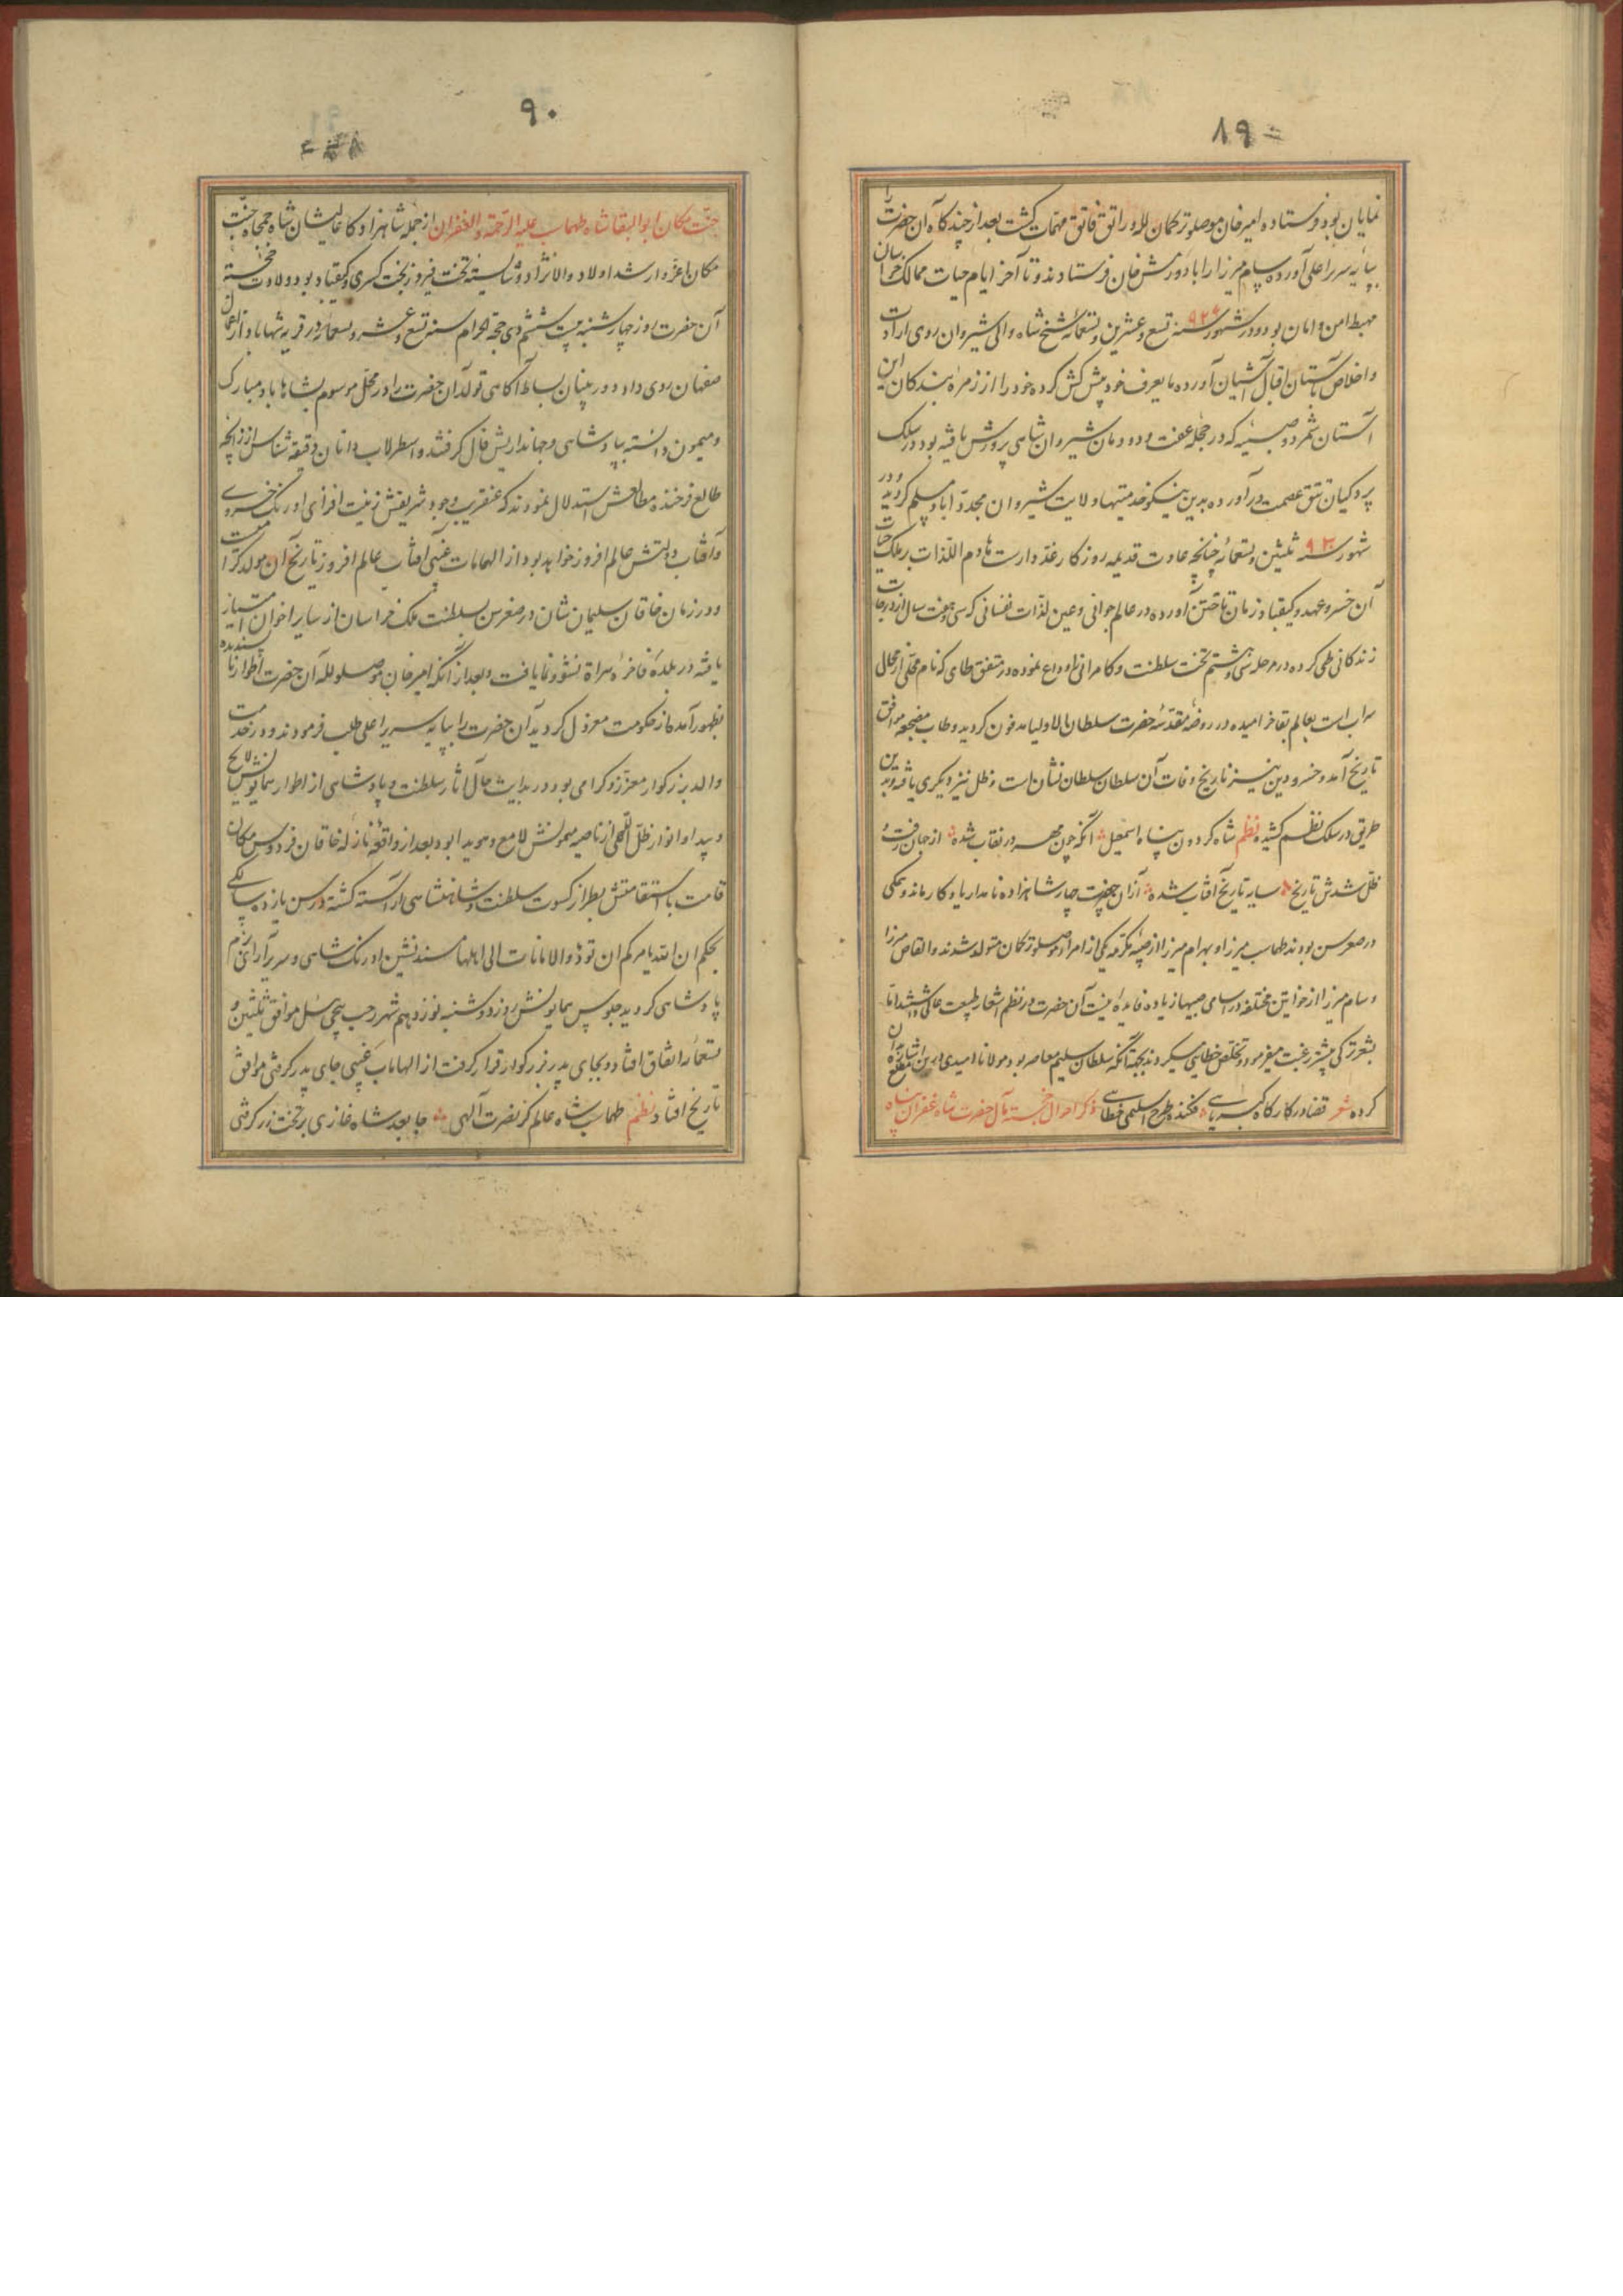 ۸۹
نمایان بود فرستاده امیرخان موصلو ترکمان لله و راتق و فاتق مهمات گشت بعد از چند گاه آن حضرت را
بپایهٔ سریر اعلی آورده سام میرزا را با دورمش خان فرستادند و تا آخر ایام حیات ممالک خراسان
مهبط امن و امان بود و در شهور سنه ۹۲۹ تسع و عشرین و تسعمائه شیخ شاه والی شیروان روی ارادت
و اخلاص بآستان اقبال آشیان آورده مایعرف خود پیش کش کرده خود را از زمرهٔ بندکان این
آستان شمرد و صبیه که در حجلهٔ عفت و دودمان شیروان شاهی پرورش یافته بود در سلک
پردکیان تتق عصمت درآورده بدین نیکو خدمتیها ولایت شیروان مجدداً باو مسلم کردید و در
شهور سنه ۹۳۰ ثلثین و تسعمائه چنانچه عادت قدیمهٔ روزکار غدار است هادم اللذات بر ملک حیات
آن خسرو عهد و کیقباد زمان تاختن آورده در عالم جوانی و عین لذات نفسانی که سی و هفت سال از درجات
زندکانی طی کرده در مرحلهٔ سی و هشتم تخت سلطنت و کامرانی را وداع نموده در متفق طای که نام محلی از محال
سراب است بعالم بقا خرامیده در روضهٔ مقدسه حضرت سلطان الاولیا مدفون کردید و طاب مضجعه موافق
تاریخ آمد و خسرو دین نیز تاریخ وفات آن سلطان سلطان نشان است و ظل نیز دیکری یافته و بدین
طریق در سلک نظم کشیده نظم شاه کردون پناه اسمعیل آنکه چون مهر در نقاب شده از جهان رفت و
ظل شدش تاریخ سایه تاریخ آفتاب شده از آن حضرت چهار شاهزاده نامدار یادکار ماند و همکی
در صغر سن بودند طهماسب میرزا و بهرام میرزا از صبیه مکرمه یکی از امراء موصلو ترکمان متولد شدند و القاص میرزا
و سام میرزا از خواتین مختلفه در اسامی صبیها زیاده فایده نیست آن حضرت در نظم اشعار طبیعت عالی داشتند اما
بشعر ترکی بیشتر رغبت میفرمود و تخلص خطایی میکردند بجهة آنکه سلطان سلیم معاصر بود مولانا امیدی در این مقطع اشاره بآن
کرده شعر قضا در کارکاه کبریایی فکنده طرح اسلیمی خطایی ذکر احوال خجسته مآل حضرت شاه غفران پناه
۹۰
جنت مکان ابوالبقا شاه طهماسب علیه الرحمة و الغفران از جمله شاهزادکان عالیشان شاه جمجاه جنت
مکان اعز و ارشد اولاد والا نژاد و شایستهٔ تخت فیروز بخت کسری و کیقباد بود ولادت خجستهٔ
آن حضرت روز چهارشنبه بیست و ششم ذی حجة الحرام سنه تسع و عشر و تسعمائه در قریه شهاباد از اعمال
صفهان روی داد و دوربینان بساط آکاهی تولد آن حضرت را در محل موسوم بشاهاباد مبارک
و میمون دانسته بپادشاهی و جهانداریش فال کرفتند و اسطرلاب دانان دقیقه شناس از زایچهٔ
طالع فرخنده مطالعش استدلال نمودند که عنقریب وجود شریفش زینت افزای اورنک خسروی
و آفتاب دولتش عالم افروز خواهد بود از الهامات غیبی آفتاب عالم افروز تاریخ آن مولد کرامت
و در زمان خاقان سلیمان شان در صغر سن بسلطنت ملک خراسان از سایر اخوان امتیاز
یافته در بلدهٔ فاخرهٔ هراة نشو و نما یافت و بعد از آنکه امیرخان موصلو لله آن حضرت اطوار ناپسندیده
بظهور آمده از حکومت معزول کردید آن حضرت را بپایه سریر اعلی طلب فرمودند و در خدمت
والد بزرکوار معزز و کرامی بود در بدایت حال آثار سلطنت و پادشاهی از اطوار همایونش لایح
و پیدا و انوار ظل اللهی از ناصیه میمونش لامع و هویدا بود بعد از واقعهٔ نازلهٔ خاقان فردوس مکان
قامت با استقامتش بطراز کسوت سلطنت و شاهنشاهی آراسته کشته در سن یازده سالکی
بحکم ان الله یامرکم ان تؤدوا الامانات الی اهلها مسندنشین اورنک شاهی و سریر آرای بزم
پادشاهی کردید جلوس همایونش روز دوشنبه نوزدهم شهر رجب پیچی ئیل موافق ثلثین و
تسعمائه اتفاق افتاد و بجای پدر بزرکوار قرار کرفت از الهامات غیبی جای پدر کرفتی موافق
تاریخ افتاد نظم طهماسب شاه عالم کز نصرت آلهی جا بعد شاه غازی بر تخت زر کرفتی